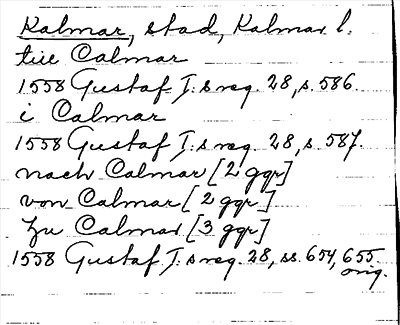 Kalmar, stad, Kalmar l.
till Calmar
1558 Gustaf I:s reg. 28, s. 586.
i Calmar
1558 Gustaf I:s reg. 28, s. 587.
nach Calmar [2 ggr]
von Calmar [2 ggr]
zu Calmar [3 ggr]
1558 Gustaf I:s reg. 28, ss. 654, 655.
orig.